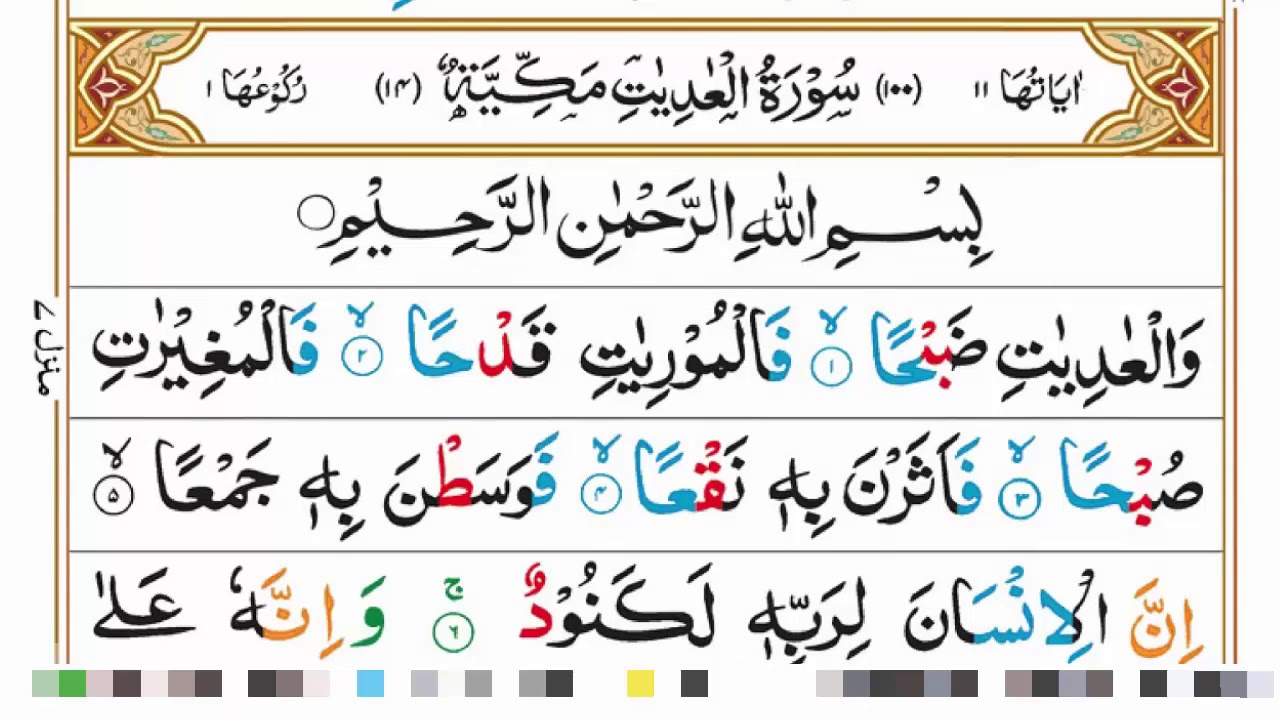 اٰيَاتُهَا ١١ (١٠٠) سُوْرَةُ الْعٰدِيٰتِ مَكِّيَّةٌ (١٤) رُكُوْعُهَا ١
بِسْمِ اللّٰهِ الرَّحْمٰنِ الرَّحِيْمِ ○
وَالْعٰدِيٰتِ ضَبْحًا ۙ ١ فَالْمُوْرِيٰتِ قَدْحًا ۙ ٢ فَالْمُغِيْرٰتِ
صُبْحًا ۙ ٣ فَاَثَرْنَ بِهٖ نَقْعًا ۙ ۴ فَوَسَطْنَ بِهٖ جَمْعًا ۙ ۵
اِنَّ الْاِنْسَانَ لِرَبِّهٖ لَكَنُوْدٌ ۚ ٦ وَاِنَّهٗ عَلٰى
منزل ٧